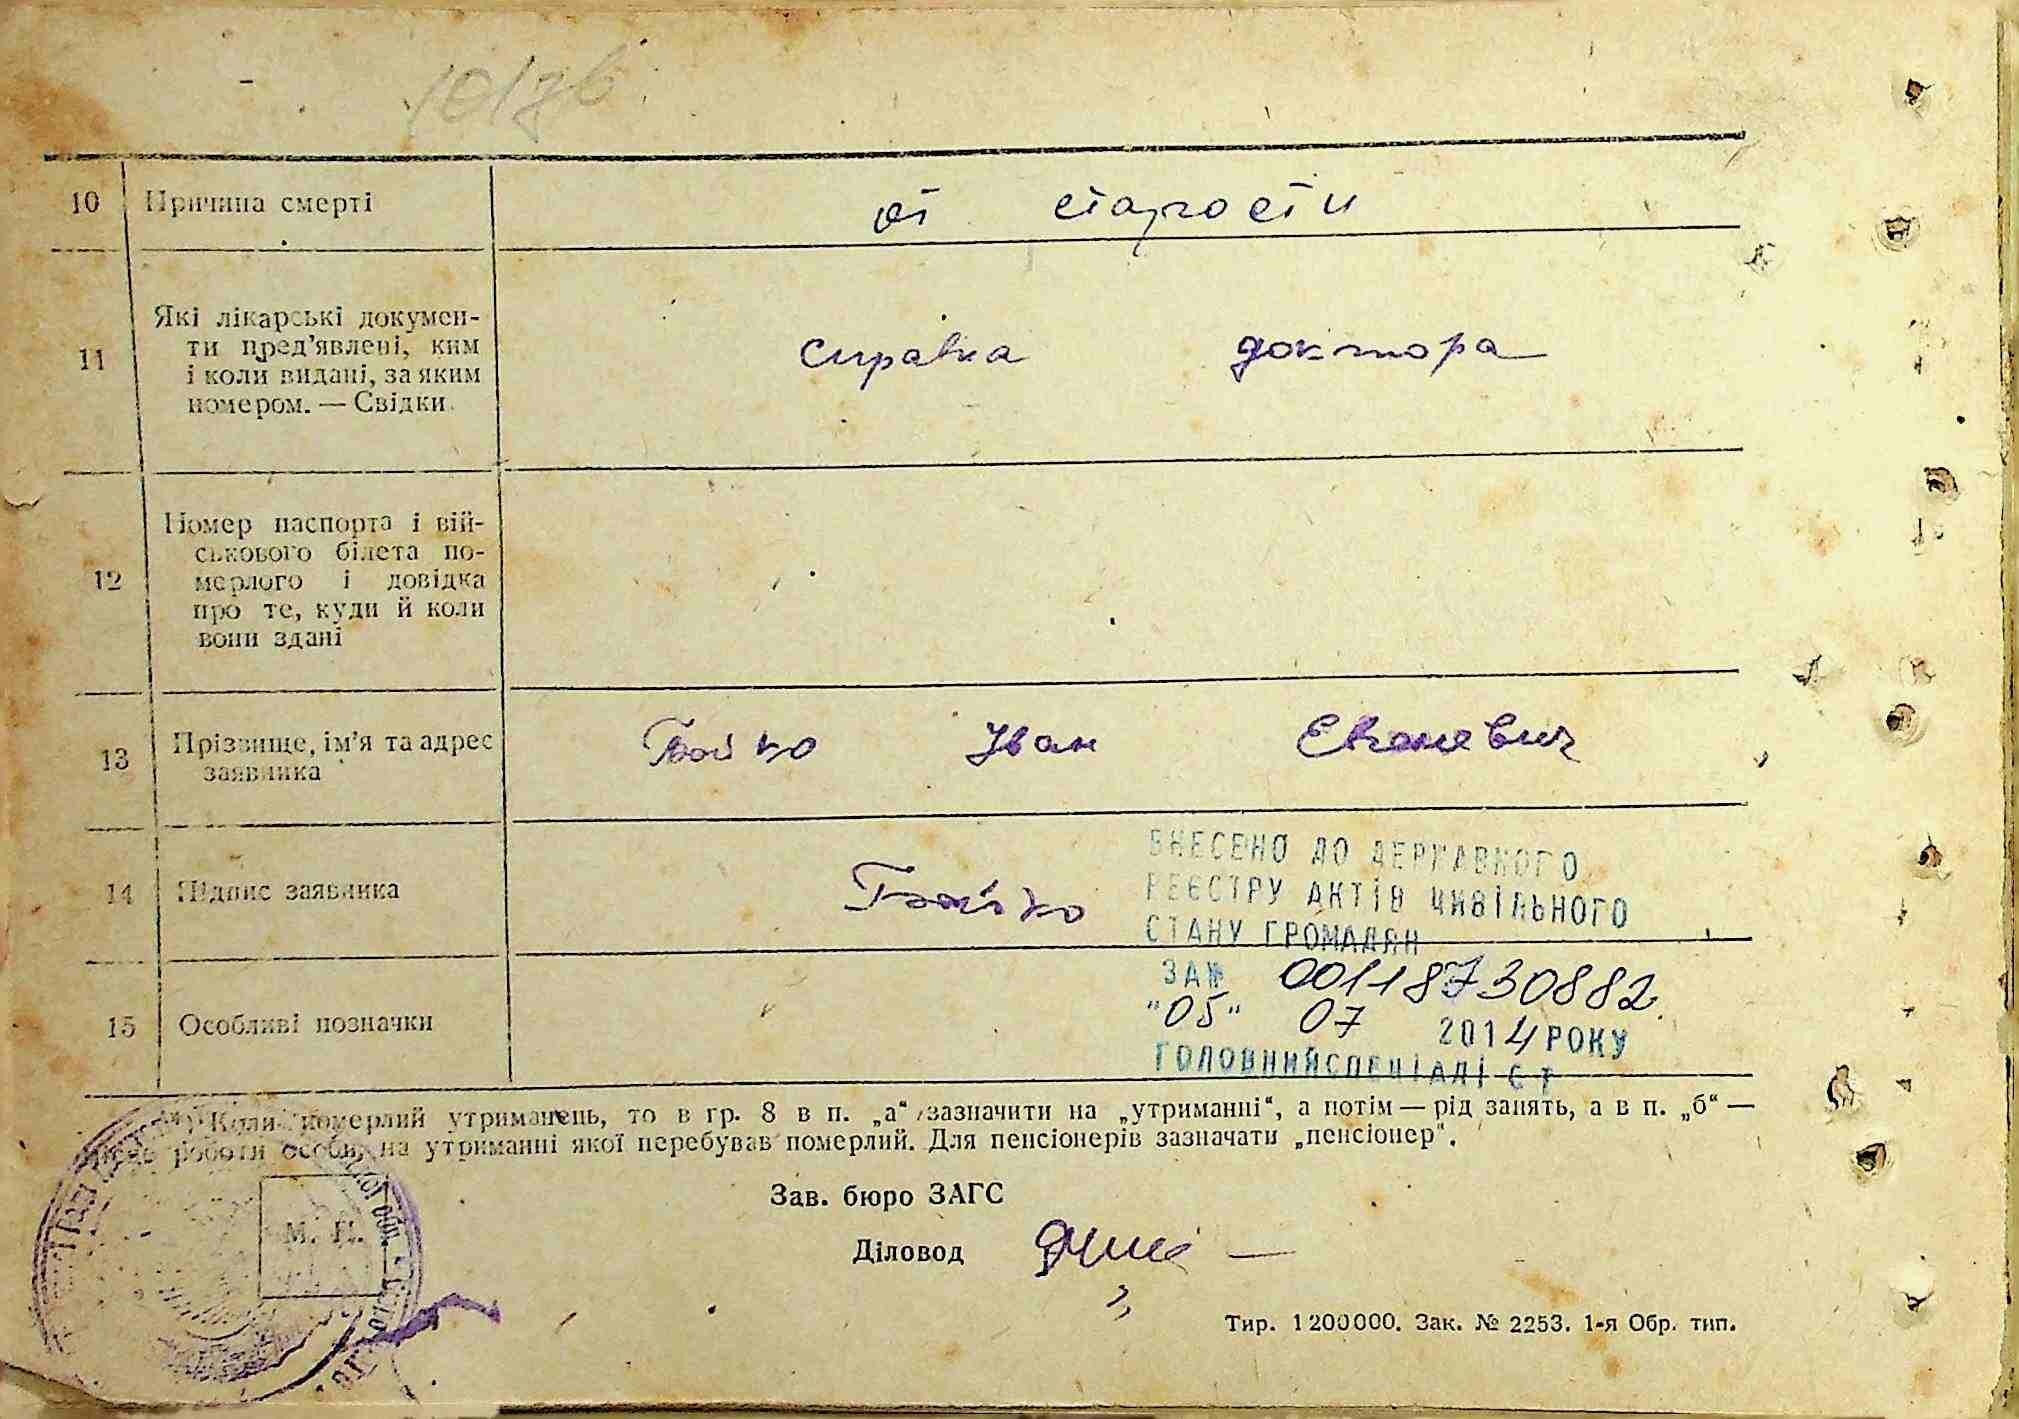 10 Причина смерті
от старости
11 Які лікарські докумен-
ти пред’явлені, ким
і коли видані, за яким
номером. — Свідки.
справка доктора
12 Номер паспорта і вій-
ськового білета по-
мерлого і довідка
про те, куди й коли
вони здані
13 Прізвище, ім’я та адрес
заявника
Бойко Іван
14 Підпис заявника
Бойко
ВНЕСЕНО ДО ДЕРЖАВНОГО
РЕЄСТРУ АКТІВ ЦИВІЛЬНОГО
СТАНУ ГРОМАДЯН
ЗА№ 00118730882
"05" 07 2014 РОКУ
ГОЛОВНИЙ СПЕЦІАЛІСТ
15 Особливі позначки
Коли померлий утриманець, то в гр. 8 в п. „а“ зазначити на „утриманні“, а потім — рід занять, а в п. „б“ —
роботи особи, на утриманні якої перебував померлий. Для пенсіонерів зазначати „пенсіонер“.
Зав. бюро ЗАГС
М. П.
Діловод
Тир. 1200000. Зак. № 2253. 1-я Обр. тип.